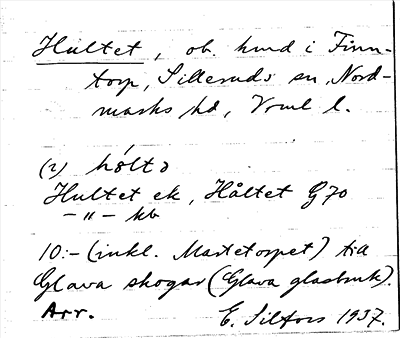 Hultet, ob. hmd i Finn-
torp, Silleruds sn, Nord-
marks hd, Vrml l.
(2) hólt
Hultet ek, Håltet G70
–"– kb
10:– (inkl. Martetorpet) till
Glava skogar (Glava glasbruk).
Arr. E. Silfors 1937.